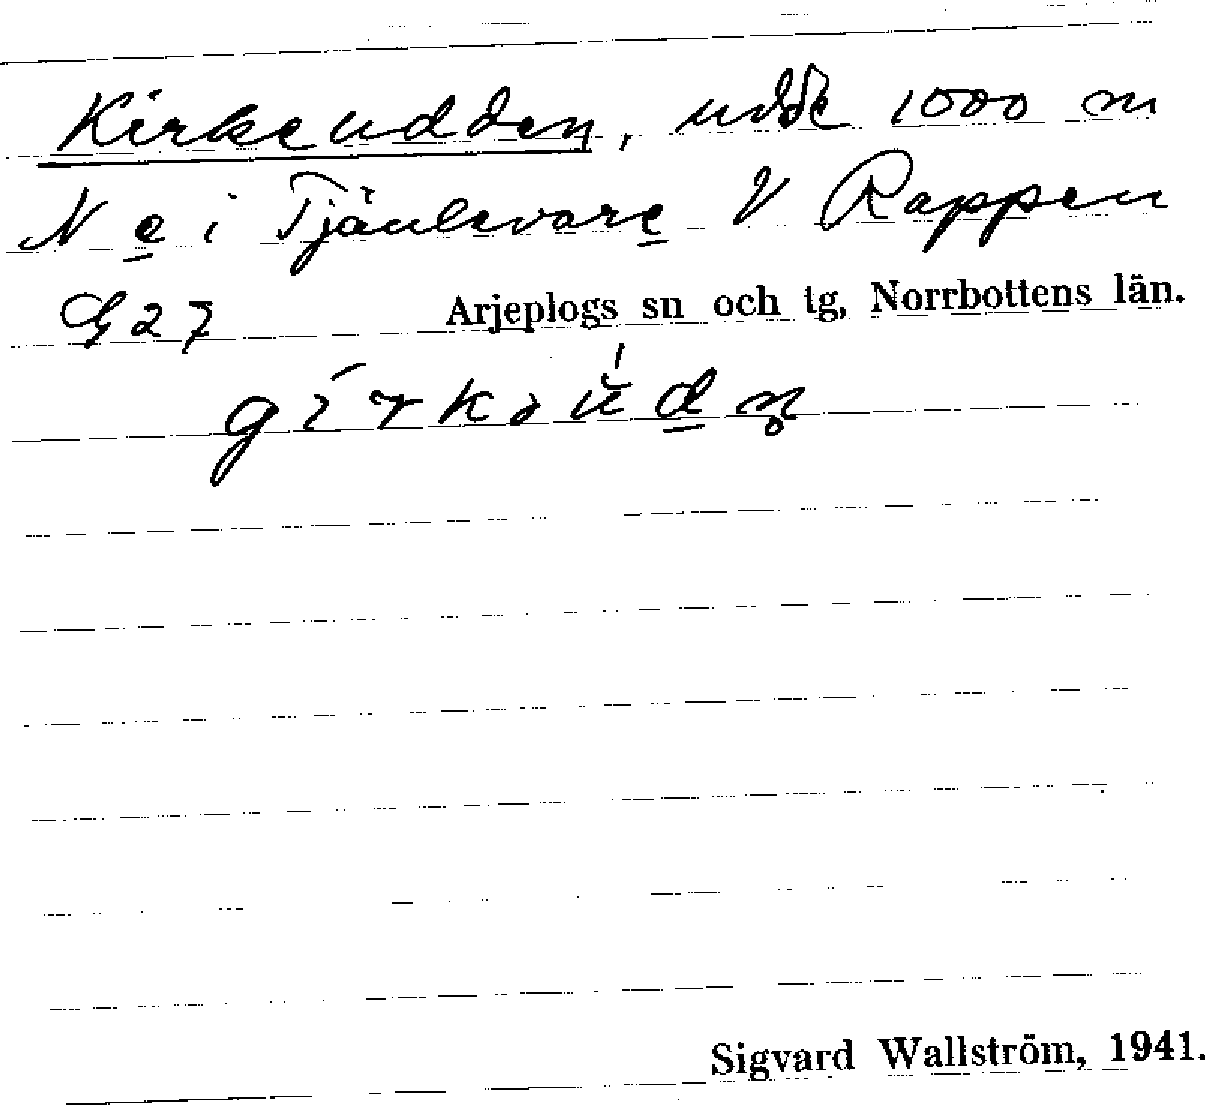 Kirkeudden, udde 1000 m
N e i Tjäulevare V Rappen
G27 Arjeplogs sn och tg, Norrbottens län.
Sigvard Wallström, 1941.